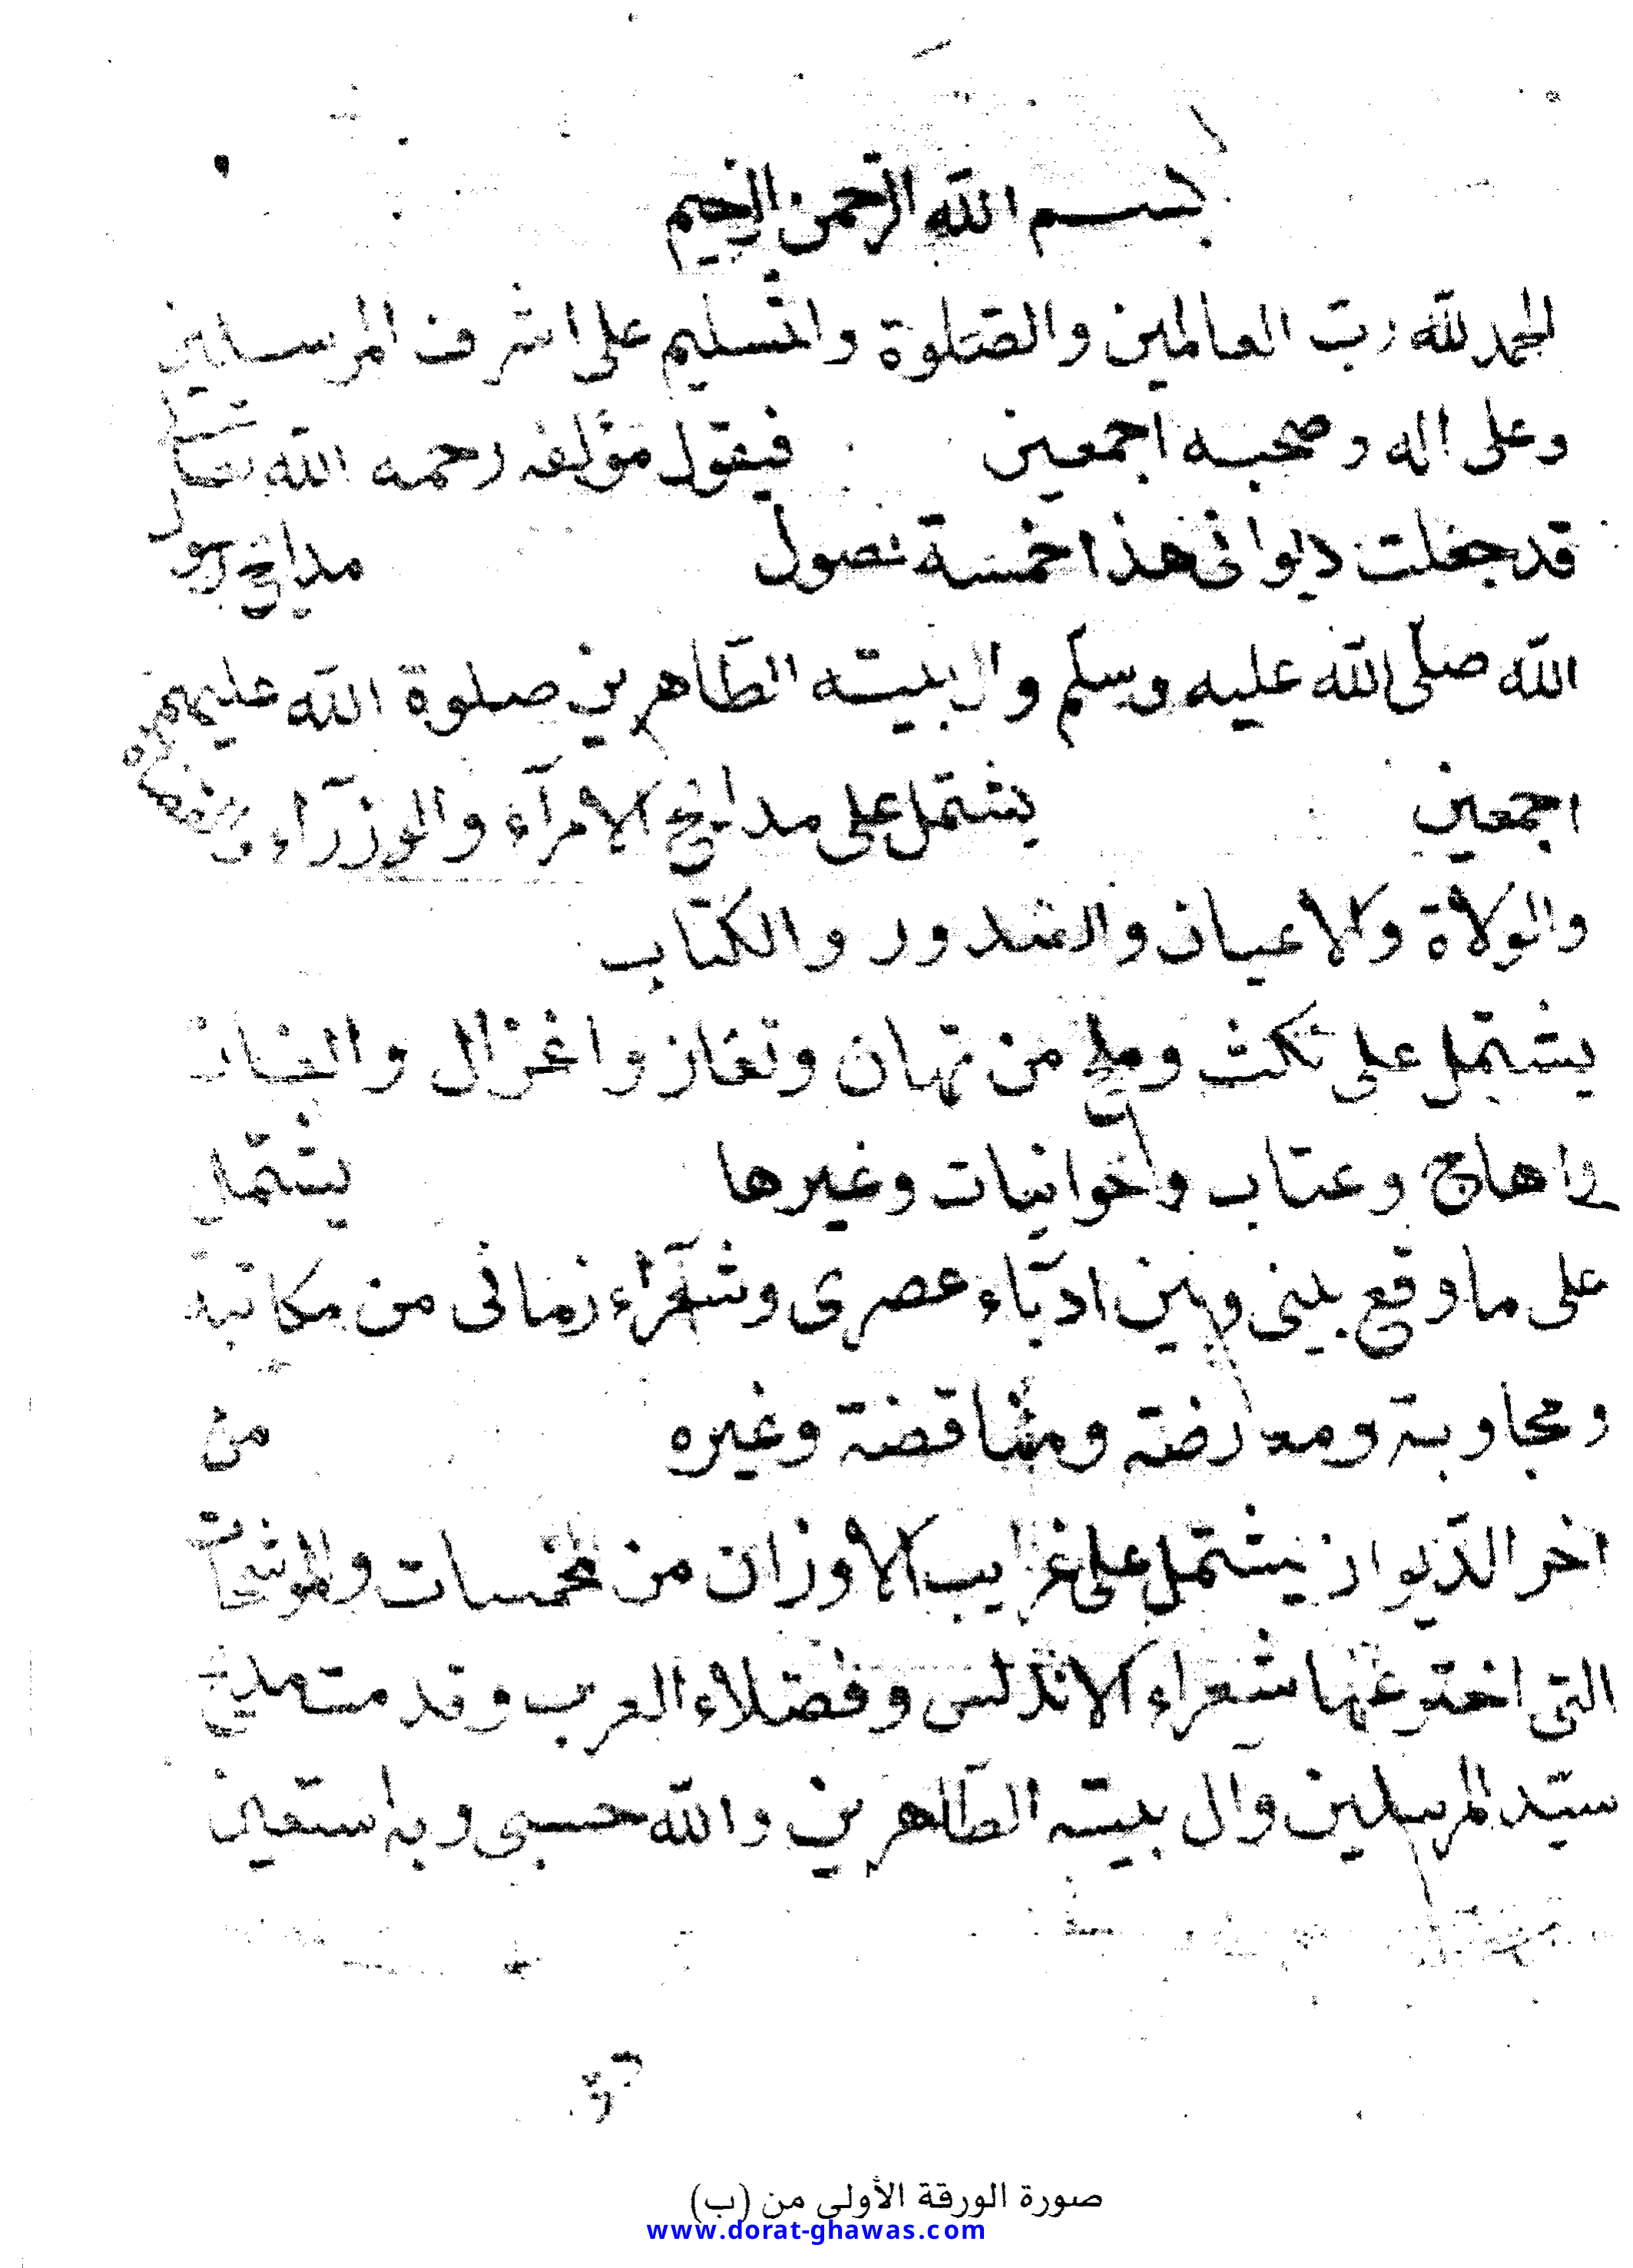 بسم الله الرحمن الرحيم
الحمد لله رب العالمين والصلوة والتسليم على اشرف المرسلين
وعلى اله وصحبه اجمعين فيقول مؤلفه رحمه الله تعالى
قد جعلت ديوانى هذا خمسة فصول مدايح رسول
الله صلى الله عليه وسلم وال بيته الطاهرين صلوة الله عليهم
اجمعين يشتمل على مدايح الامرآء والوزرآء
والولاة والاعيان والصدور والكتاب
يشتمل على نكث وملح من تهان وتعاز واغزال والغاز
واهاج وعتاب واخوانيات وغيرها يشتمل
على ما وقع بينى وبين ادبآء عصرى وشعرآء زمانى من مكاتبة
ومجاوبة ومعارضة ومناقضة وغيره من
اخر الديوان يشتمل على غرايب الاوزان من مخمسات والموشحات
التى اخترعتها شعراء الاندلس وفضلاء العرب وقدمت مديح
سيد المرسلين وآل بيته الطاهرين والله حسبى وبه استعين
صورة الورقة الأولى من (ب)
www.dorat-ghawas.com